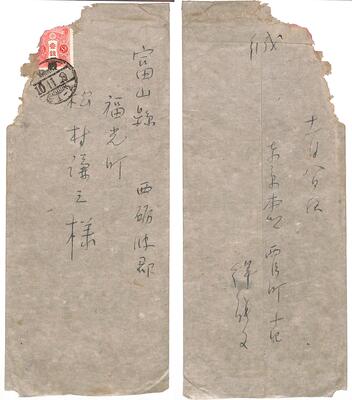 富山縣 西礪波郡
福光町
松村謙三様
10.11.9
緘
十一月八日夜
東京本郷 西片町十